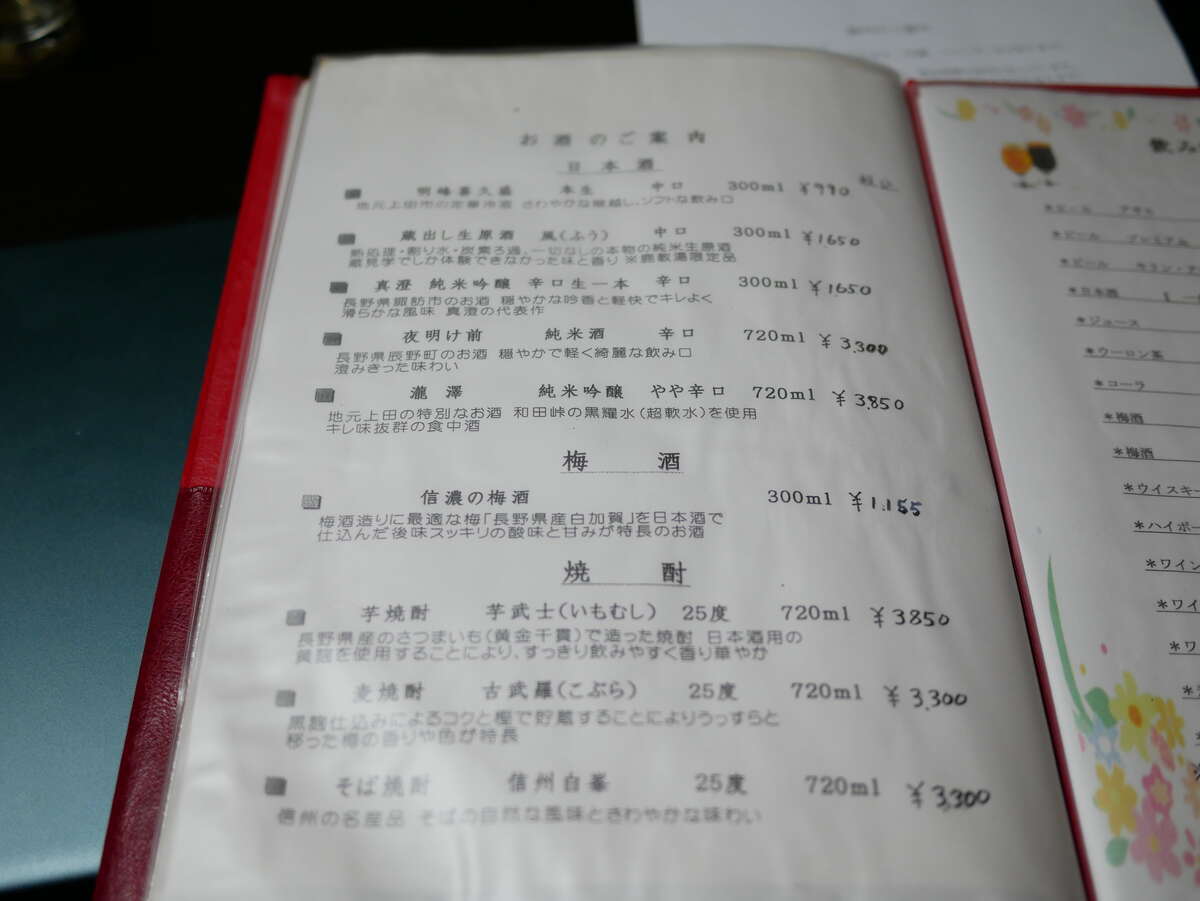 お酒のご案内
日本酒
明峰喜久盛 本生 中口 300ml ¥990 税込
地元上田市の定番冷酒 さわやかな喉越し、ソフトな飲み口
蔵出し生原酒 風(ふう) 中口 300ml ¥1650
熱処理・割り水・炭素ろ過、一切なしの本物の純米生原酒
蔵見学でしか体験できなかった味と香り ※鹿教湯限定品
真澄 純米吟醸 辛口生一本 辛口 300ml ¥1650
長野県諏訪市のお酒 穏やかな吟香と軽快でキレよく
滑らかな風味 真澄の代表作
夜明け前 純米酒 辛口 720ml ¥3,300
長野県辰野町のお酒 穏やかで軽く綺麗な飲み口
澄みきった味わい
瀧澤 純米吟醸 やや辛口 720ml ¥3,850
地元上田の特別なお酒 和田峠の黒耀水(超軟水)を使用
キレ味抜群の食中酒
梅酒
信濃の梅酒 300ml ¥1,155
梅酒造りに最適な梅「長野県産白加賀」を日本酒で
仕込んだ後味スッキリの酸味と甘みが特長のお酒
焼酎
芋焼酎 芋武士(いもむし) 25度 720ml ¥3850
長野県産のさつまいも(黄金千貫)で造った焼酎 日本酒用の
黄麹を使用することにより、すっきり飲みやすく香り華やか
麦焼酎 古武羅(こぶら) 25度 720ml ¥3,300
黒麹仕込みによるコクと樫で貯蔵することによりうっすらと
移った樽の香りや色が特長
そば焼酎 信州白峯 25度 720ml ¥3,300
信州の名産品 そばの自然な風味とさわやかな味わい
飲み
*ビール アサヒ
*ビール プレミアム
*ビール キリン・ア
*日本酒
*ジュース
*ウーロン茶
*コーラ
*梅酒
*梅酒
*ウイスキー
*ハイボー
*ワイン
*ワイ
*ワ